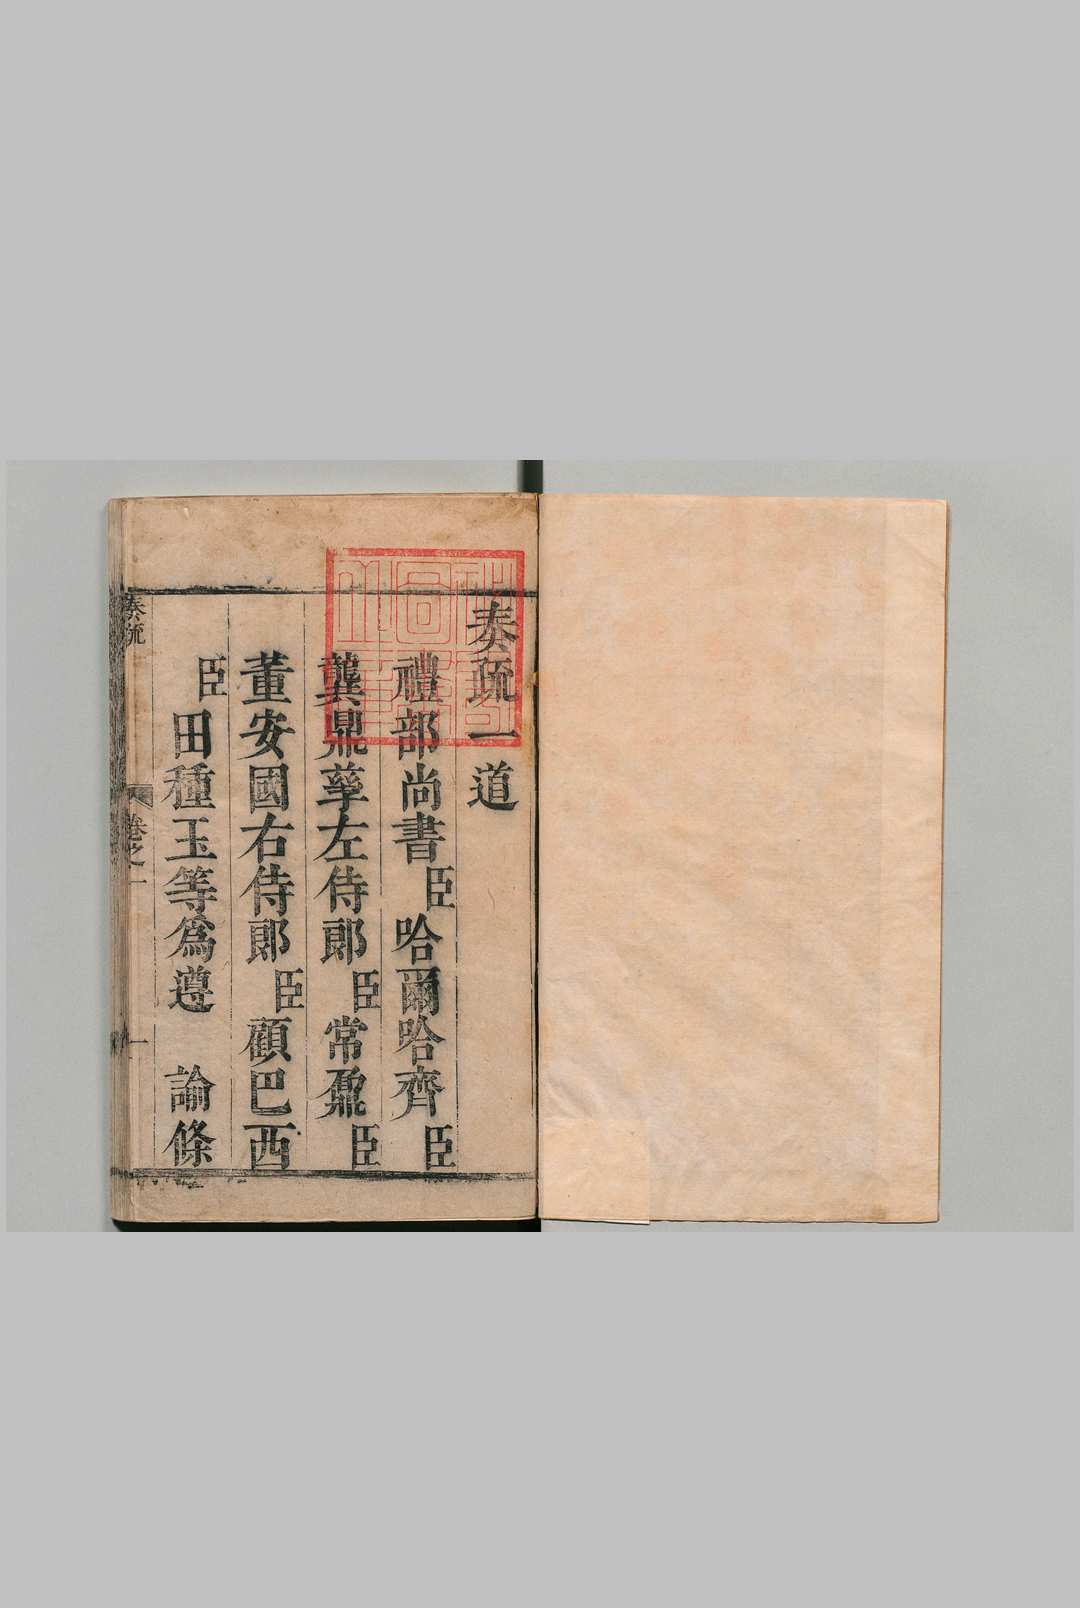 奏疏一道
禮部尚書臣哈爾哈齊臣
龔鼎孳左侍郎臣常鼐臣
董安國右侍郎臣顧巴西
臣田種玉等爲遵　諭條
奏疏
卷之一
一